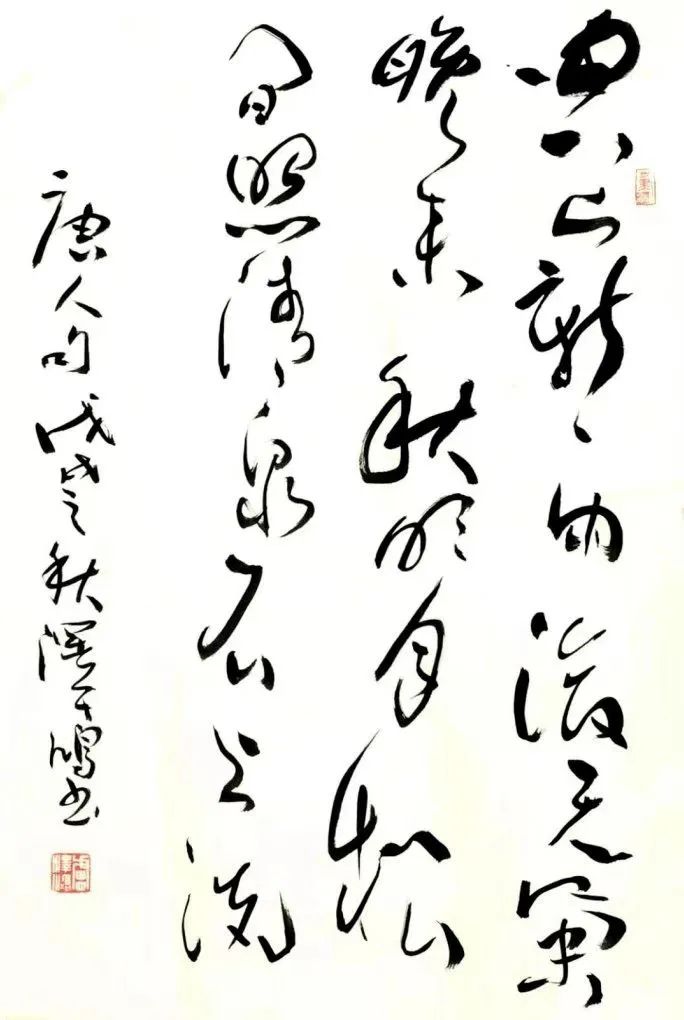 空山新雨後天氣
晚來秋明月松
間照清泉石上流
唐人句戊戌之秋澤書